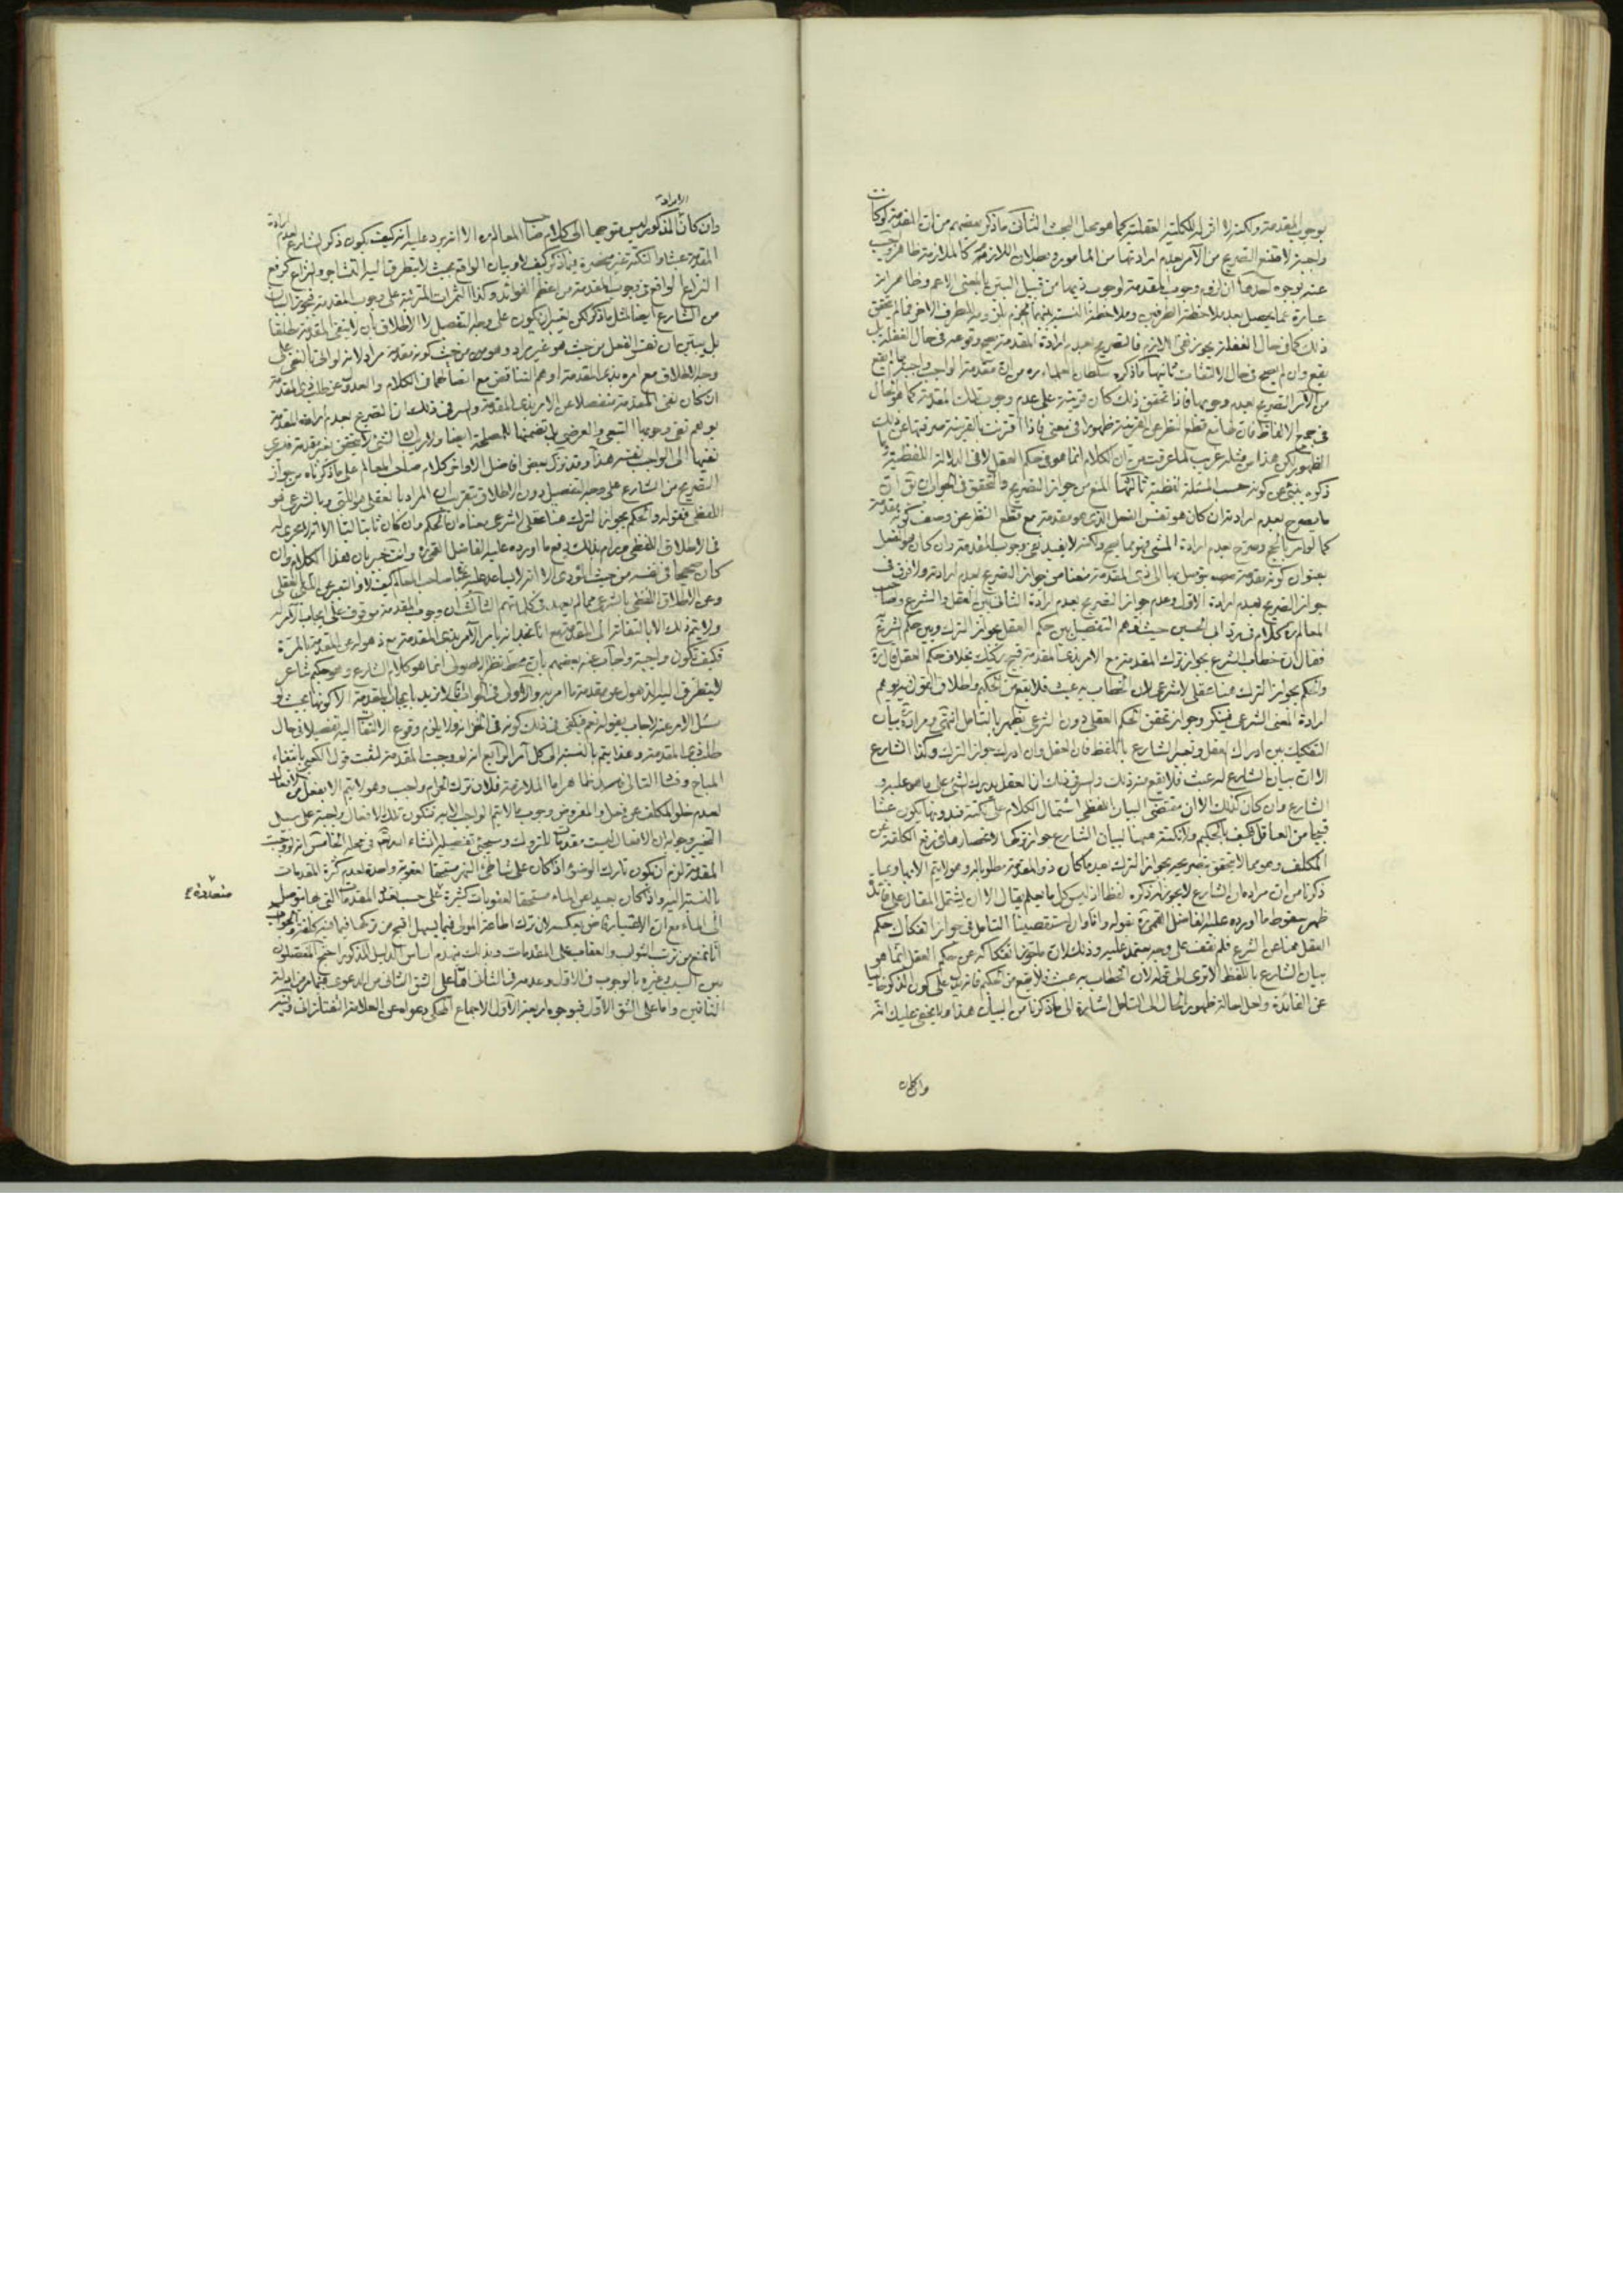 بوجوب المقدمة ولكنه لا اثر له للكلية العقلية كما هو محل البحث الثاني ما ذكره بعضهم من ان المقدمة لو كانت
واجبة لامتنع التصريح من الآمر بعدم ارادتها من المأمور وبطلان اللازم كالملازمة ظاهر
عنه بوجوه احدها ان لزوم وجوب المقدمة لوجوب ذيها من قبيل البين بالمعنى الاعم وهذا
عبارة عما يحصل بعد ملاحظة الطرفين وملاحظة النسبة بينهما الجزم بلزوم الطرف الآخر فما لم يتحقق
ذلك كما في حال الغفلة يجوز نفي اللازم فالتصريح بعدم ارادة المقدمة صحيح وقوعه في حال الغفلة بل
يقع وان لم يصح في حال الالتفات ثانيها ما ذكره سلطان العلماء ره من ان مقدمة الواجب واجبة
من الآمر التصريح بعدم وجوبها فاذا تحقق ذلك كان قرينة على عدم وجوب تلك المقدمة كما هو الحال
في جميع الالفاظ فان لها مع قطع النظر عن القرينة ظهورا في معنى فاذا اقترنت بالقرينة صرفتها عن ذلك
الظهور لكن هذا من مثله غريب لما عرفت من ان الكلام انما هو في حكم العقل لا في الدلالة اللفظية
ذكره ينبئ عن كونه حسب المسئلة لفظية ثالثها المنع من جواز التصريح والتحقيق في الجواب ان
ما يصرح بعدم ارادته ان كان هو نفس الفعل الذي هو مقدمة مع قطع النظر عن وصف كونه مقدمة
كما لو امر بالحج وصرح بعدم ارادة المشي فهو مما يصح ولكنه لا يفيد نفي وجوب المقدمة وان كان هو الفعل
بعنوان كونه مقدمة يتوصل بها الى ذي المقدمة منعنا من جواز التصريح بعدم ارادته ولا فرق في
جواز التصريح بعدم ارادة الاول وعدم جواز التصريح بعدم ارادة الثاني بين العقل والشرع وصاحب
المعالم ره كلام في رد ابي الحسين حيث توهم التفصيل بين حكم العقل بجواز الترك وبين حكم الشرع
فقال ان خطاب الشرع بجواز ترك المقدمة مع الامر بذي المقدمة قبيح ركيك بخلاف حكم العقل قال ره
والحكم بجواز الترك هنا عقلي لا شرعي لان الخطاب به عبث فلا يقع من الحكيم واطلاق القول فيه يوهم
ارادة المعنى الشرعي فينكر وجواز تحقق الحكم العقلي دون الشرعي يظهر بالتأمل انتهى ومراده بيان
التفكيك بين ادراك العقل وتعبير الشارع باللفظ فان العقل وان ادرك جواز الترك وكذا الشارع
الا ان بيان الشارع له عبث فلا يقع منه ذلك والسر في ذلك ان العقل يدرك الشيء على ما هو عليه و
الشارع وان كان كذلك الا ان مقتضى البيان اللفظي اشتمال الكلام على نكتة فبدونها يكون عبثا
قبيحا من العاقل فكيف بالحكيم ولا نكتة ههنا لبيان الشارع جواز تركها لانحصارها في رفع الكلفة عن
المكلف وهو مما لا يتحقق بتصريحه بجواز الترك بعد ما كان ذو المقدمة مطلوبا له وهو لا يتم الا بها وبما
ذكرنا من ان مراده ان الشارع لا يجوز ان يذكره لفظا اذ ليس كل ما يعلم يقال الا ان يشتمل المقال على فائدة
ظهر سقوط ما اورده عليه الفاضل القمي ره بقوله وانا وان استقصينا التأمل في جواز انفكاك حكم
العقل ههنا عن الشرع فلم نقف على وجه يعتمد عليه وذلك لان ما جوز انفكاكه عن حكم العقل انما هو
بيان الشارع باللفظ الا ترى الى قوله لان الخطاب به عبث فلا يقع من الحكيم فانه يدل على كون المذكور خاليا
عن الفائدة ولعل احالة ظهور الحال الى التأمل اشارة الى ما ذكرنا من البيان هذا ولا يخفى عليك انه
وان كان
الارادة
وان كان المذكور ليس متوجها الى كلام صاحب المعالم ره الا انه يرد عليه انه كيف يكون ذكر الشارع لعدم ارادة
المقدمة عبثا والنكتة غير منحصرة فيما ذكر كيف لا وبيان الواقع بحيث لا يتطرق اليه التشاجر والنزاع كرفع
النزاع الواقع في وجوب المقدمة من اعظم الفوائد وكذا الثمرات المترتبة على وجوب المقدمة فيجوز البيان
من الشارع ايضا لمثل ما ذكر لكن يعتبر ان يكون على وجه التفصيل لا الاطلاق بان لا ينفي المقدمة مطلقا
بل يبين ان نفس الفعل من حيث هو غير مراد وهو من حيث كونه مقدمة مراد لانه لو اتى بالنفي على
وجه الاطلاق مع امره بذي المقدمة اوهم التناقض مع انضمامه في الكلام والعدول عن طلب ذي المقدمة
ان كان نفي المقدمة منفصلا عن الامر بذي المقدمة والسر في ذلك ان التصريح بعدم ارادة المقدمة
يوهم نفي وجوبها التبعي والعرضي بل تضمنها للمصلحة ايضا ولا ريب ان الشيء لا يتحقق بغير مقدمة فيسري
نفيها الى الواجب بنفسه هذا وقد نزل بعض افاضل الاواخر كلام صاحب المعالم على ما ذكرناه من جواز
التصريح من الشارع على وجه التفصيل دون الاطلاق بتقريب ان المراد بالعقلي هو اللبي وبالشرعي هو
اللفظي فقوله والحكم بجواز الترك هنا عقلي لا شرعي معناه ان الحكم وان كان ثابتا لبا الا انه لا مجرى له
في الاطلاق اللفظي ورام بذلك دفع ما اورده عليه الفاضل القمي ره وانت خبير بان هذا الكلام وان
كان صحيحا في نفسه من حيث المؤدى الا انه لا يساعد عليه عبارة صاحب المعالم كيف لا والتعبير عن اللبي بالعقلي
وعن الاطلاق اللفظي بالشرعي مما لم يعهد في كلماتهم الثالث ان وجوب المقدمة موقوف على ايجاب الآمر له
ولا يتم ذلك الا بالتفاته الى المقدمة مع انا نجد انه يأمر الآمر بذي المقدمة مع ذهوله عن المقدمة بالمرة
فكيف تكون واجبة واجاب عنه بعضهم بان محط نظر الاصولي انما هو كلام الشارع وهو حكيم شاعر
لا يتطرق اليه الذهول عن مقدمة ما امر به والاولى في الجواب ان يقال لا نريد بايجاب المقدمة الا كونها بحيث لو
سئل الآمر عنه لاجاب بقوله نعم فيكفي في ذلك كونه في الخزانة ولا يلزم وقوع الالتفات اليه تفصيلا في حال
طلب ذي المقدمة وهذا يتم بالنسبة الى كل آمر الرابع انه لو وجبت المقدمة لثبت قول الكعبي بانتفاء
المباح وفساد التالي كاستلزامها ظاهر اما الملازمة فلان ترك الحرام واجب وهو لا يتم الا بفعل من الافعال
لعدم خلو المكلف عن فعل والمفروض وجوب ما لا يتم الواجب الا به فتكون تلك الافعال واجبة على سبيل
التخيير وجوابه ان الافعال ليست مقدمة للتروك وسيجئ تفصيله انشاء الله تعالى في محله الخامس انه لو وجبت
المقدمة لزم ان يكون تارك الوضوء اذا كان على شاطئ النهر مستحقا لعقوبة واحدة لعدم كثرة المقدمات
بالنسبة اليه واذا كان بعيدا عن الماء مستحقا لعقوبات كثيرة على حسب تعدد المقدمات التي بها يتوصل
الى الماء مع ان الاعتبار قاض بعكسه لان ترك اطاعة المولى فيما يسهل اقبح من تركها فيما فيه كلفة والجواب
انا نمنع من ترتب الثواب والعقاب على المقدمات وبذلك ينهدم اساس الدليل المذكور احتج المفصلون
بين السبب وغيره بالوجوب في الاول وعدمه في الثاني اما على الشق الثاني من الدعوى فبما مر من ادلة
النافين واما على الشق الاول فبوجوه اربعة الاول الاجماع المحكي دعواه عن العلامة التفتازاني
متعددة